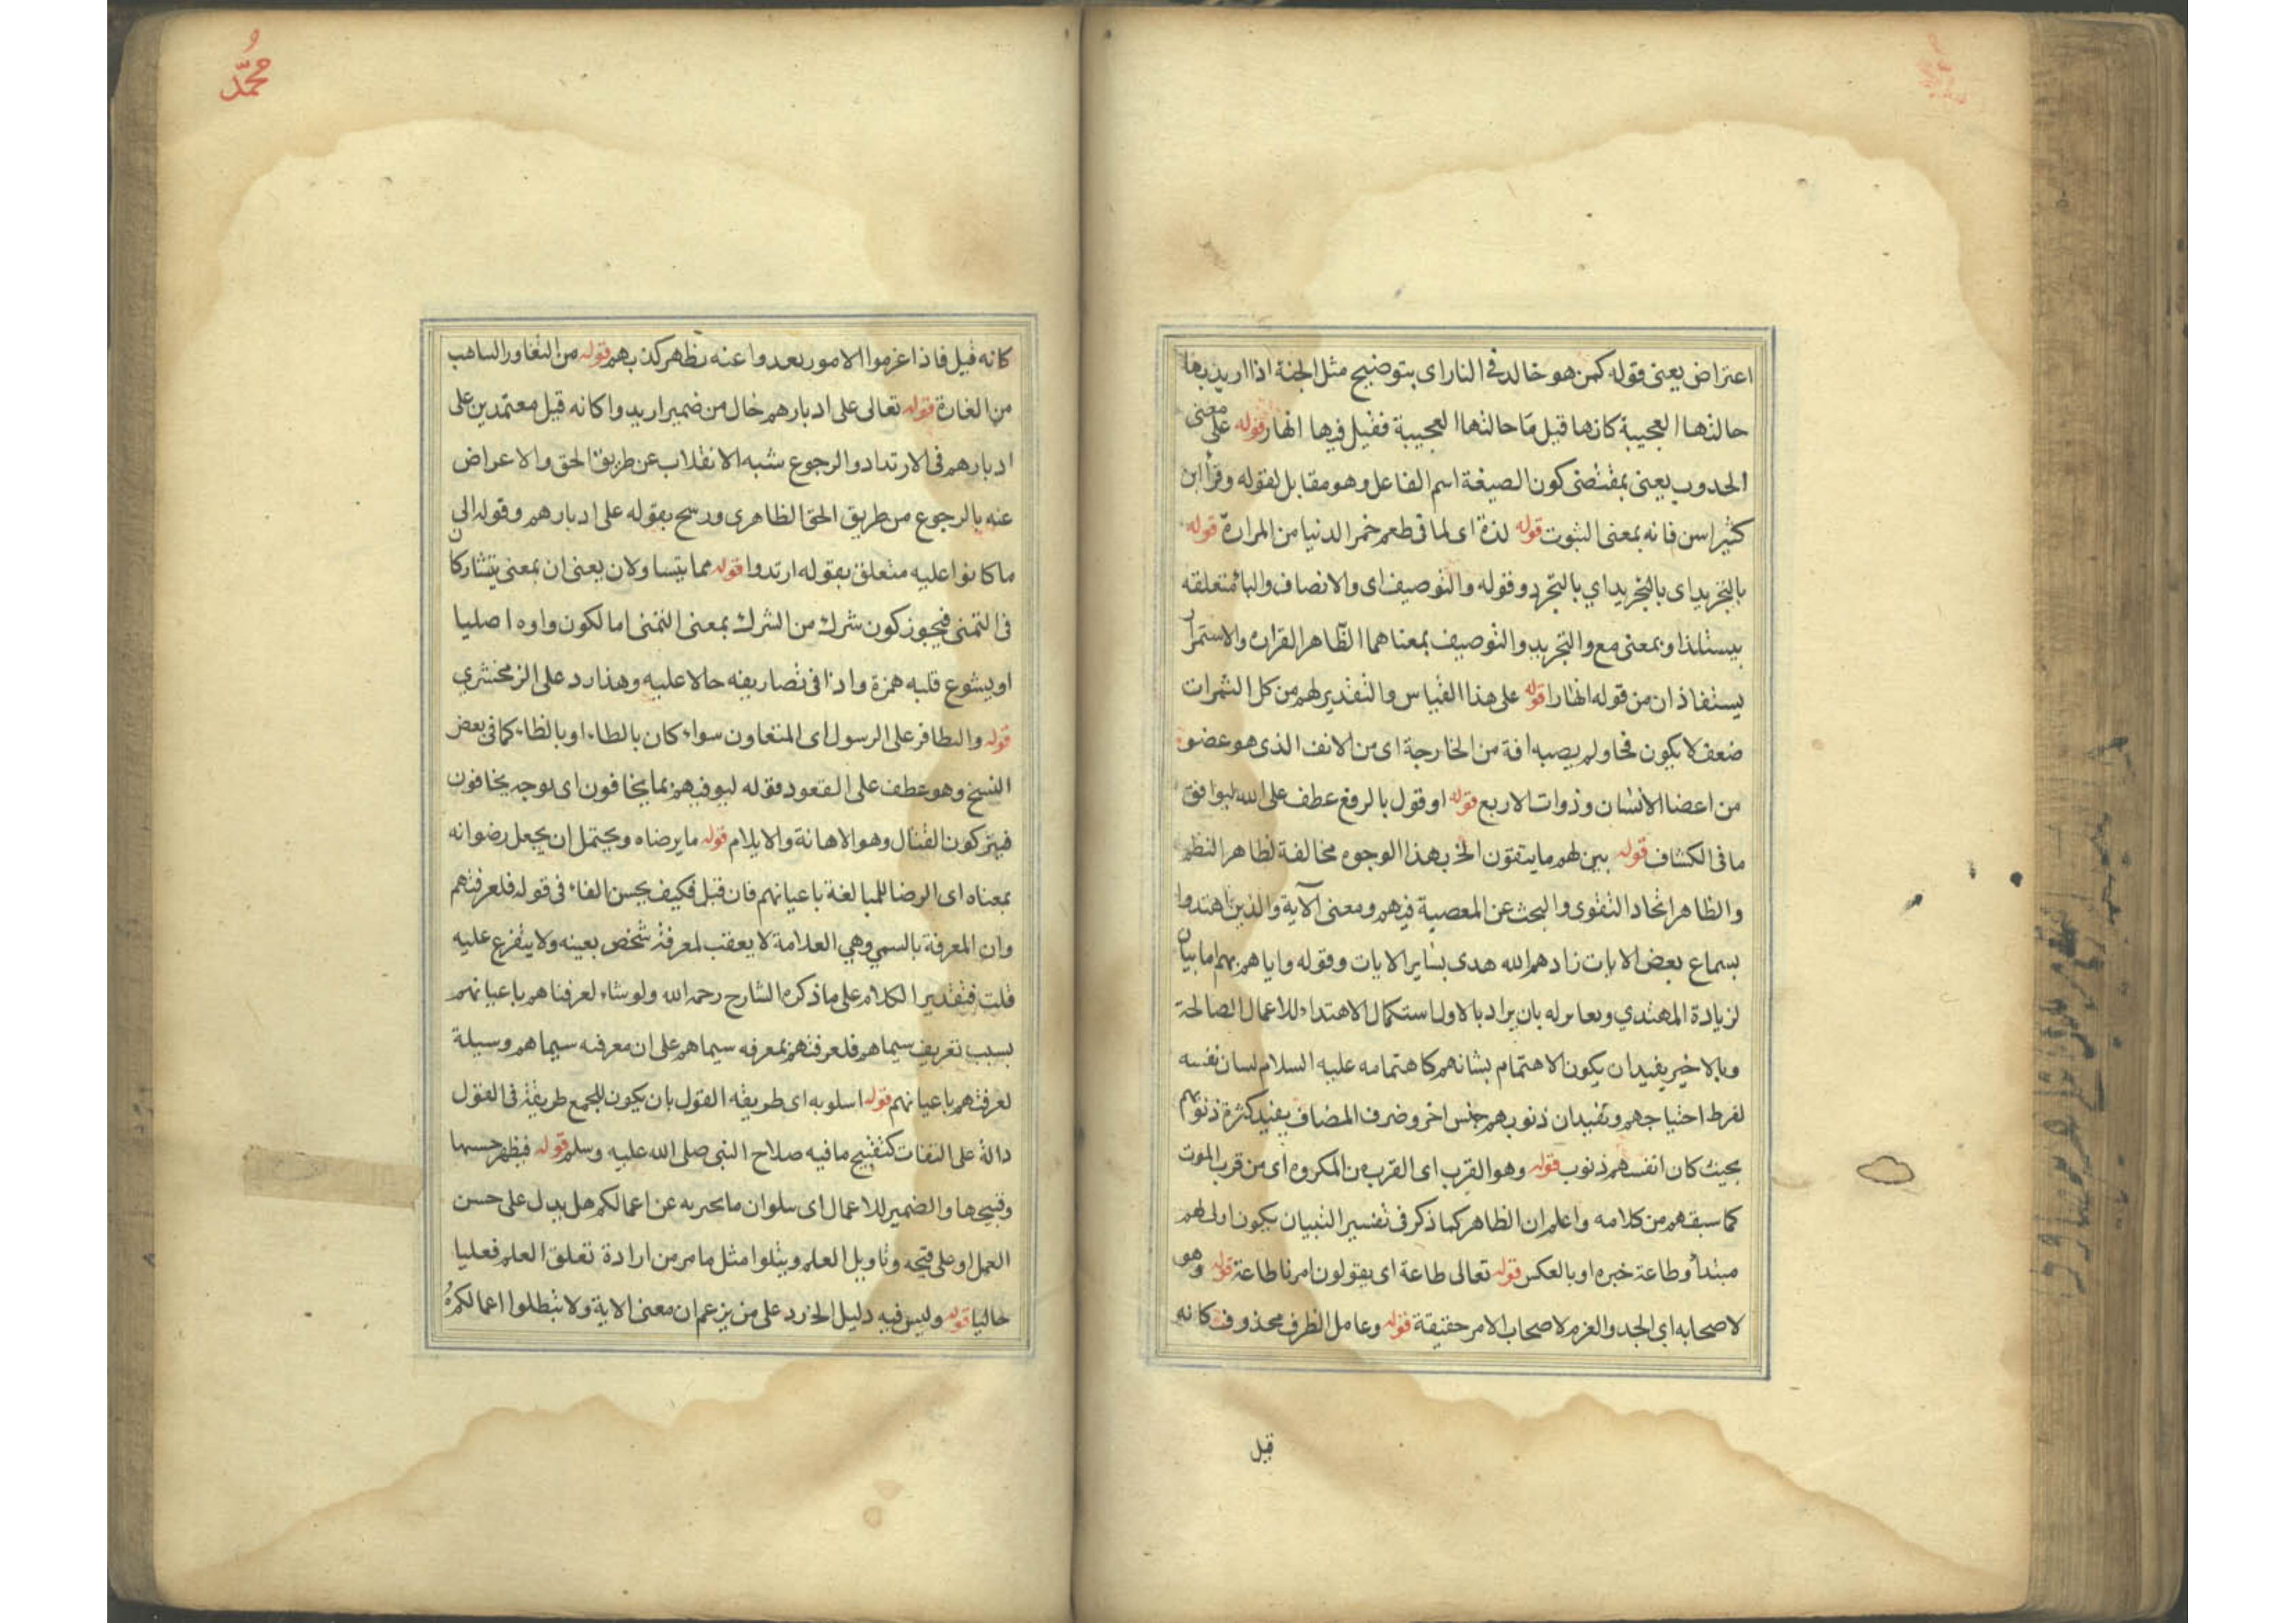 اعتراض يعنى قوله كمن هو خالد فى النار اى بتوضيح مثل الجنة اذا اريد بها
حالتها العجيبة كانها قيل ما حالتها العجيبة فقيل فيها انهار قوله على معنى
الحدوب يعنى بمقتضى كون الصيغة اسم الفاعل وهو مقابل لقوله وقرأ ابن
كثير اسن فانه بمعنى الثبوت قوله لذة اى لما فى طعم خمر الدنيا من المرارة قوله
بالتجريد اى بالتجريد اي بالتجرد وقوله والتوصيف اى والاتصاف والباء متعلقة
بيستلذ او بمعنى مع والتجريد والتوصيف بمعناهما الظاهر القران والاستمرار
يستفاذان من قوله انهارا قوله على هذا القياس والتقدير لهم من كل الثمرات
ضعف لا يكون فحا ولم يصبه افة من الخارجة اى من الانف الذى هو عضو
من اعضا الانسان وذوات الاربع قوله او قول بالرفع عطف على الله ليوافق
ما فى الكشاف قوله بين لهم ما يتقون الخ بهذا الوجوه مخالفة لظاهر النظم
والظاهر اتحاد التقوى والبحث عن المعصية فيهم ومعنى الآية والذين اهتدوا
بسماع بعض الايات زادهم الله هدى بساير الايات وقوله واياهم بهم اما بيان
لزيادة المهتدي ويعا له بان يراد بالاول استكمال الاهتداء للاعمال الصالحة
وبالاخير يفيد ان يكون الاهتمام بشانهم كاهتمامه عليه السلام لسان نفسه
لفرط احتياجهم وتفيد ان ذنوبهم جنس اخر وضرف المضاف يفيد كثرة ذنوبهم
بحيث كان انفسهم ذنوب قوله وهو القرب اى القرب من المكروه اى من قرب الموت
كما سبقهم من كلامه واعلم ان الظاهر كما ذكر فى تفسير التبيان يكون اولى لهم
مبتدأ وطاعة خبره او بالعكس قوله تعالى طاعة اى يقولون امرنا طاعة قوله وهو
لاصحابه اي الجد والعزم لاصحاب الامر حقيقة قوله وعامل الظرف محذوف كانه
قيل
محمد
كانه قيل فاذا عزموا الامور بعدوا عنه نظهر كذبهم قوله من التغاور الساهب
من الغارة قوله تعالى على ادبارهم حال من ضمير اريدوا كانه قيل معتمدين على
ادبارهم فى الارتداد والرجوع شبه الانقلاب عن طريق الحق والاعراض
عنه بالرجوع من طريق الحق الظاهرى ورسح بقوله على ادبارهم وقوله الى
ما كانوا عليه متعلق بقوله ارتدوا قوله مما يتساولان يعنى ان بمعنى يتشاركان
فى التمنى فيجوز كون شرك من الشرك بمعنى التمنى اما لكون واوه اصليا
او بشوع قلبه همزة واذا فى تصاريفه حالا عليه وهذا رد على الزمخشري
قوله والنظافر على الرسول اى المتعاون سواء كان بالطاء او بالظاء كما فى بعض
النسخ وهو عطف على القعود قوله ليوفيهم بما يخافون اى لوجه يخافون
فيتركون القتال وهو الاهانة والايلام قوله ما يرضاه ويحتمل ان يجعل رضوانه
بمعناه اى الرضا للمبالغة باعيانهم فان قبل فكيف يحسن الفاء فى قوله فلعرفتهم
وان المعرفة بالسمي وهي العلامة لا يعقب لمعرفة شخص بعينه ولا يتفرع عليه
قلت فتقدير الكلام على ما ذكره الشارح رحمه الله ولو شاء لعرفناهم باعيانهم
بسبب تعريف سيماهم فلعرفتهم بمعرفه سيماهم على ان معرفه سيماهم وسيلة
لعرفتهم باعيانهم قوله اسلوبه اى طريقه القول بان يكون للجمع طريقة فى القول
دالة على النفات كتقبيح ما فيه صلاح النبى صلى الله عليه وسلم قوله فيظهر حسنها
وقبيحها والضمير للاعمال اى سلوان ما يخبر به عن اعمالكم هل يدل على حسن
العمل او على قبحه وتاويل العلم ويتلوا مثل ما مر من ارادة تعلق العلم فعليا
حاليا قوله وليس فيه دليل الخ رد على من يزعم ان معنى الاية ولا تبطلوا اعمالكم